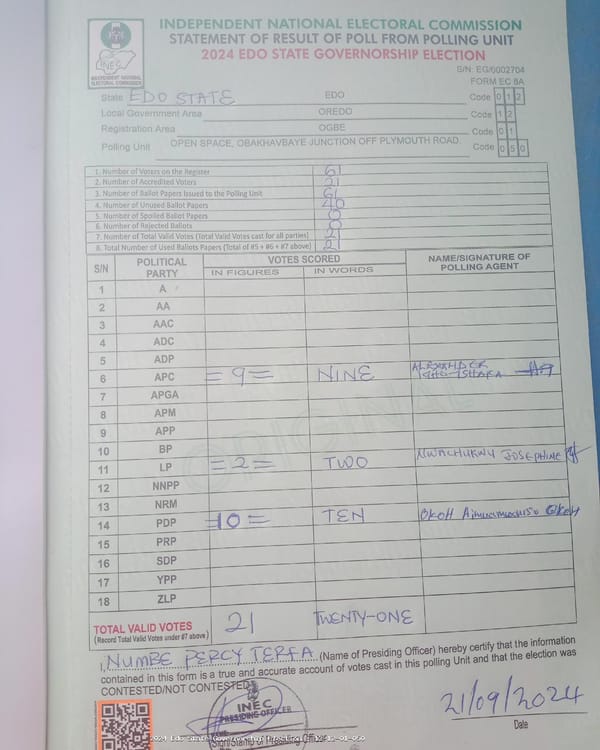 INDEPENDENT NATIONAL ELECTORAL COMMISSION
STATEMENT OF RESULT OF POLL FROM POLLING UNIT
2024 EDO STATE GOVERNORSHIP ELECTION
INEC
INDEPENDENT NATIONAL
ELECTORAL COMMISSION
S/N: EG/0002704
FORM EC 8A
State EDO STATE EDO Code 0 1 2
Local Government Area OREDO Code 1 2
Registration Area OGBE Code 0 1
Polling Unit OPEN SPACE, OBAKHAVBAYE JUNCTION OFF PLYMOUTH ROAD. Code 0 5 0
1. Number of Voters on the Register 61
2. Number of Accredited Voters 21
3. Number of Ballot Papers Issued to the Polling Unit 61
4. Number of Unused Ballot Papers 40
5. Number of Spoiled Ballot Papers 0
6. Number of Rejected Ballots 0
7. Number of Total Valid Votes (Total Valid Votes cast for all parties) 21
8. Total Number of Used Ballots Papers (Total of #5 + #6 + #7 above) 21
S/N POLITICAL PARTY VOTES SCORED NAME/SIGNATURE OF POLLING AGENT
IN FIGURES IN WORDS
1 A
2 AA
3 AAC
4 ADC
5 ADP
6 APC =9= NINE ALEXANDER
7 APGA
8 APM
9 APP
10 BP
11 LP =2= TWO NWACHUKWU JOSEPHINE
12 NNPP
13 NRM
14 PDP =10= TEN OKOH
15 PRP
16 SDP
17 YPP
18 ZLP
ORIGINAL
TOTAL VALID VOTES 21 TWENTY-ONE
(Record Total Valid Votes under #7 above)
I, NUMBE PERCY TERFA (Name of Presiding Officer) hereby certify that the information
contained in this form is a true and accurate account of votes cast in this polling Unit and that the election was
CONTESTED/NOT CONTESTED
INEC
PRESIDING OFFICER
21/09/2024
Sign/Stamp of Presiding Officer
Date